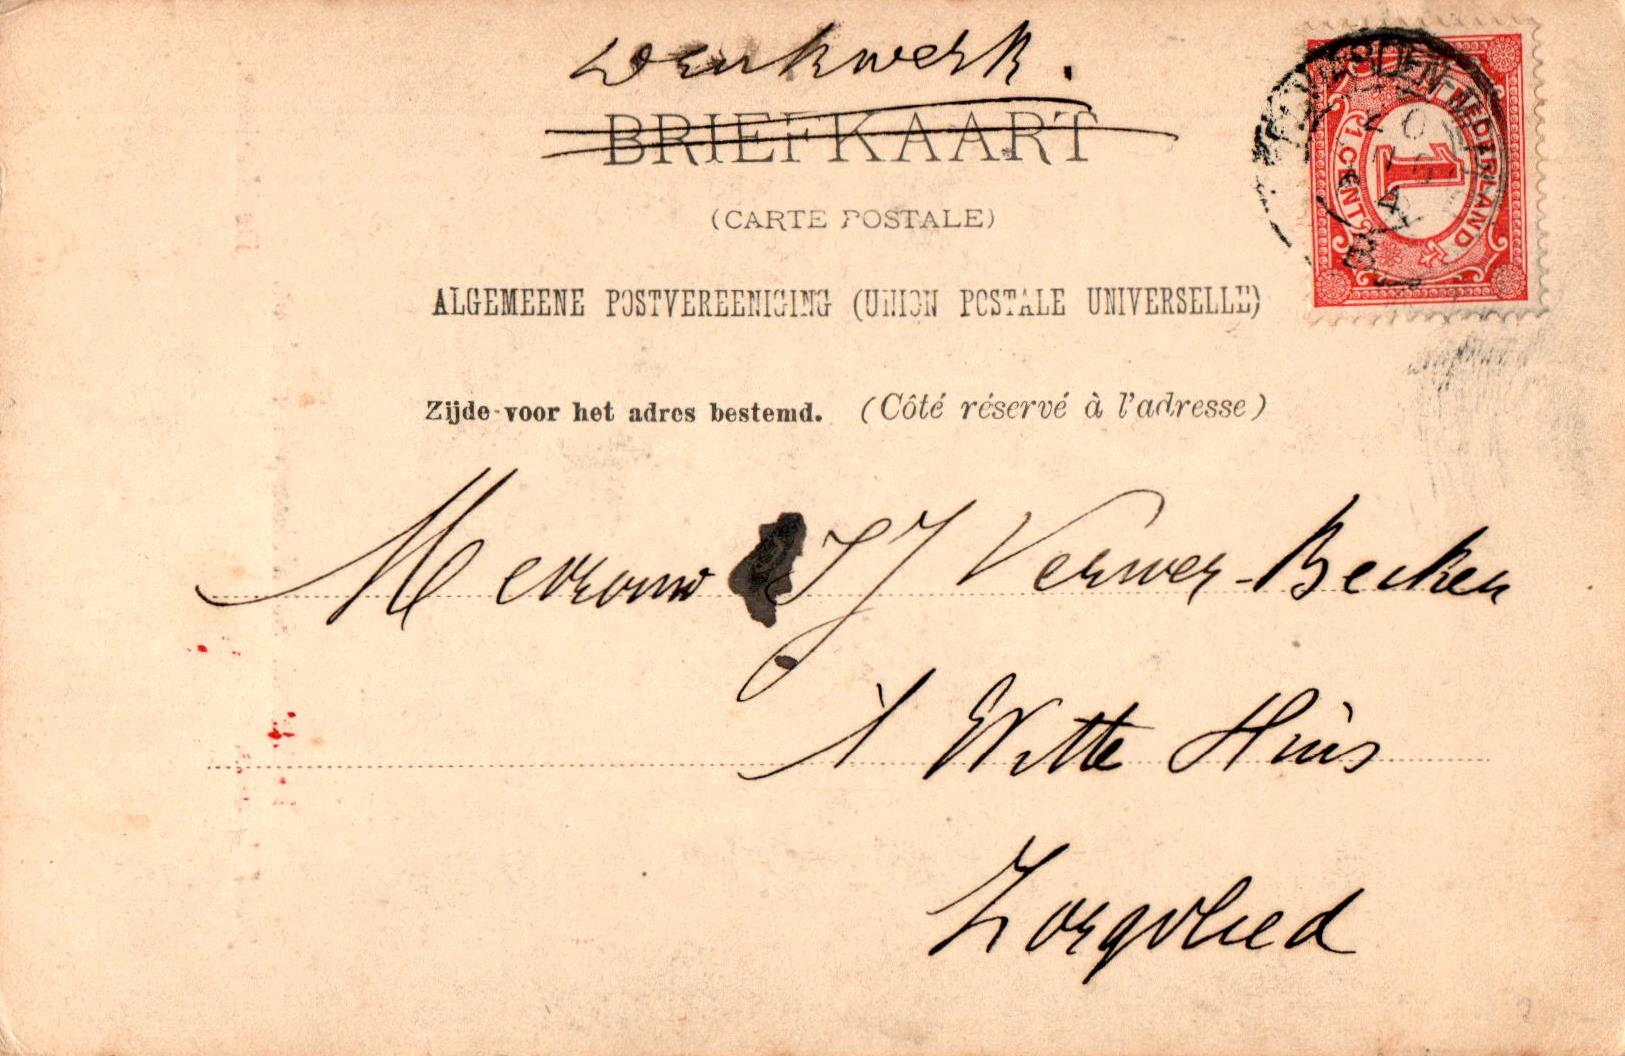 Drukwerk.
BRIEFKAART
(CARTE POSTALE)
ALGEMEENE POSTVEREENIGING (UNION POSTALE UNIVERSELLE)
Zijde voor het adres bestemd. (Côté réservé à l'adresse)
NEDERLAND
1
1 CENT
Mevrouw J J Verwer-Becker
't Witte Huis
Zorgvlied